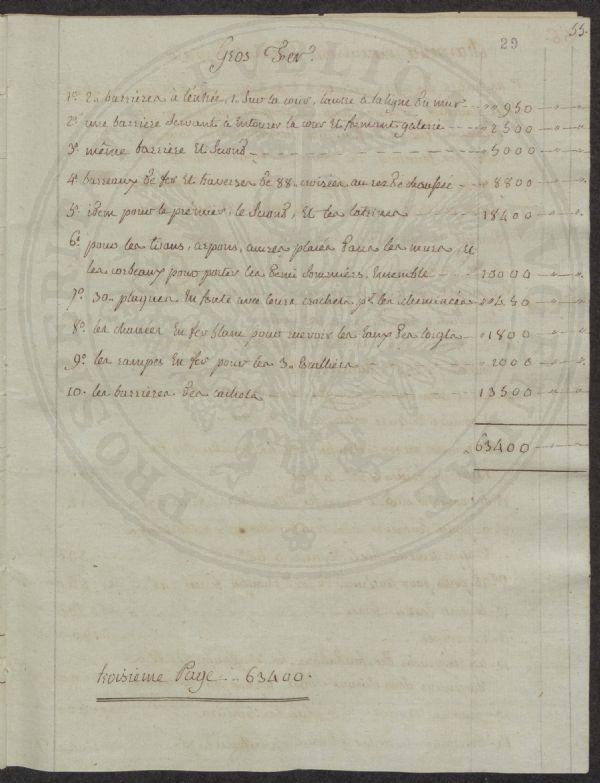 29
55.
Gros Fer.
1º. 2. barrieres à l'entrée, 1. sur la cour, l'autre à la ligne du mur 950
2º une barriere servant à entourer la cour et formant galerie 2500
3º même barriere et second 5000
4º barreaux de fer et traverses de 88. croisées au rez de chaussée 8800
5º idem pour le premier, le second, et les latrines 18400
6º pour les tirans, arpons, ancres placés dans les murs, et
les corbeaux pour porter les demi sommiers, Ensemble 10000
7º 30. plaques en fonte avec leurs crochets pr. les cheminées 450
8º les chanées en fer blanc pour recevoir les Eaux des toigts 1800
9º les rampes en fer pour les 3. Escalliers 2000
10. les barrieres des cachots 13500
63400
troisieme Page .. 63400.